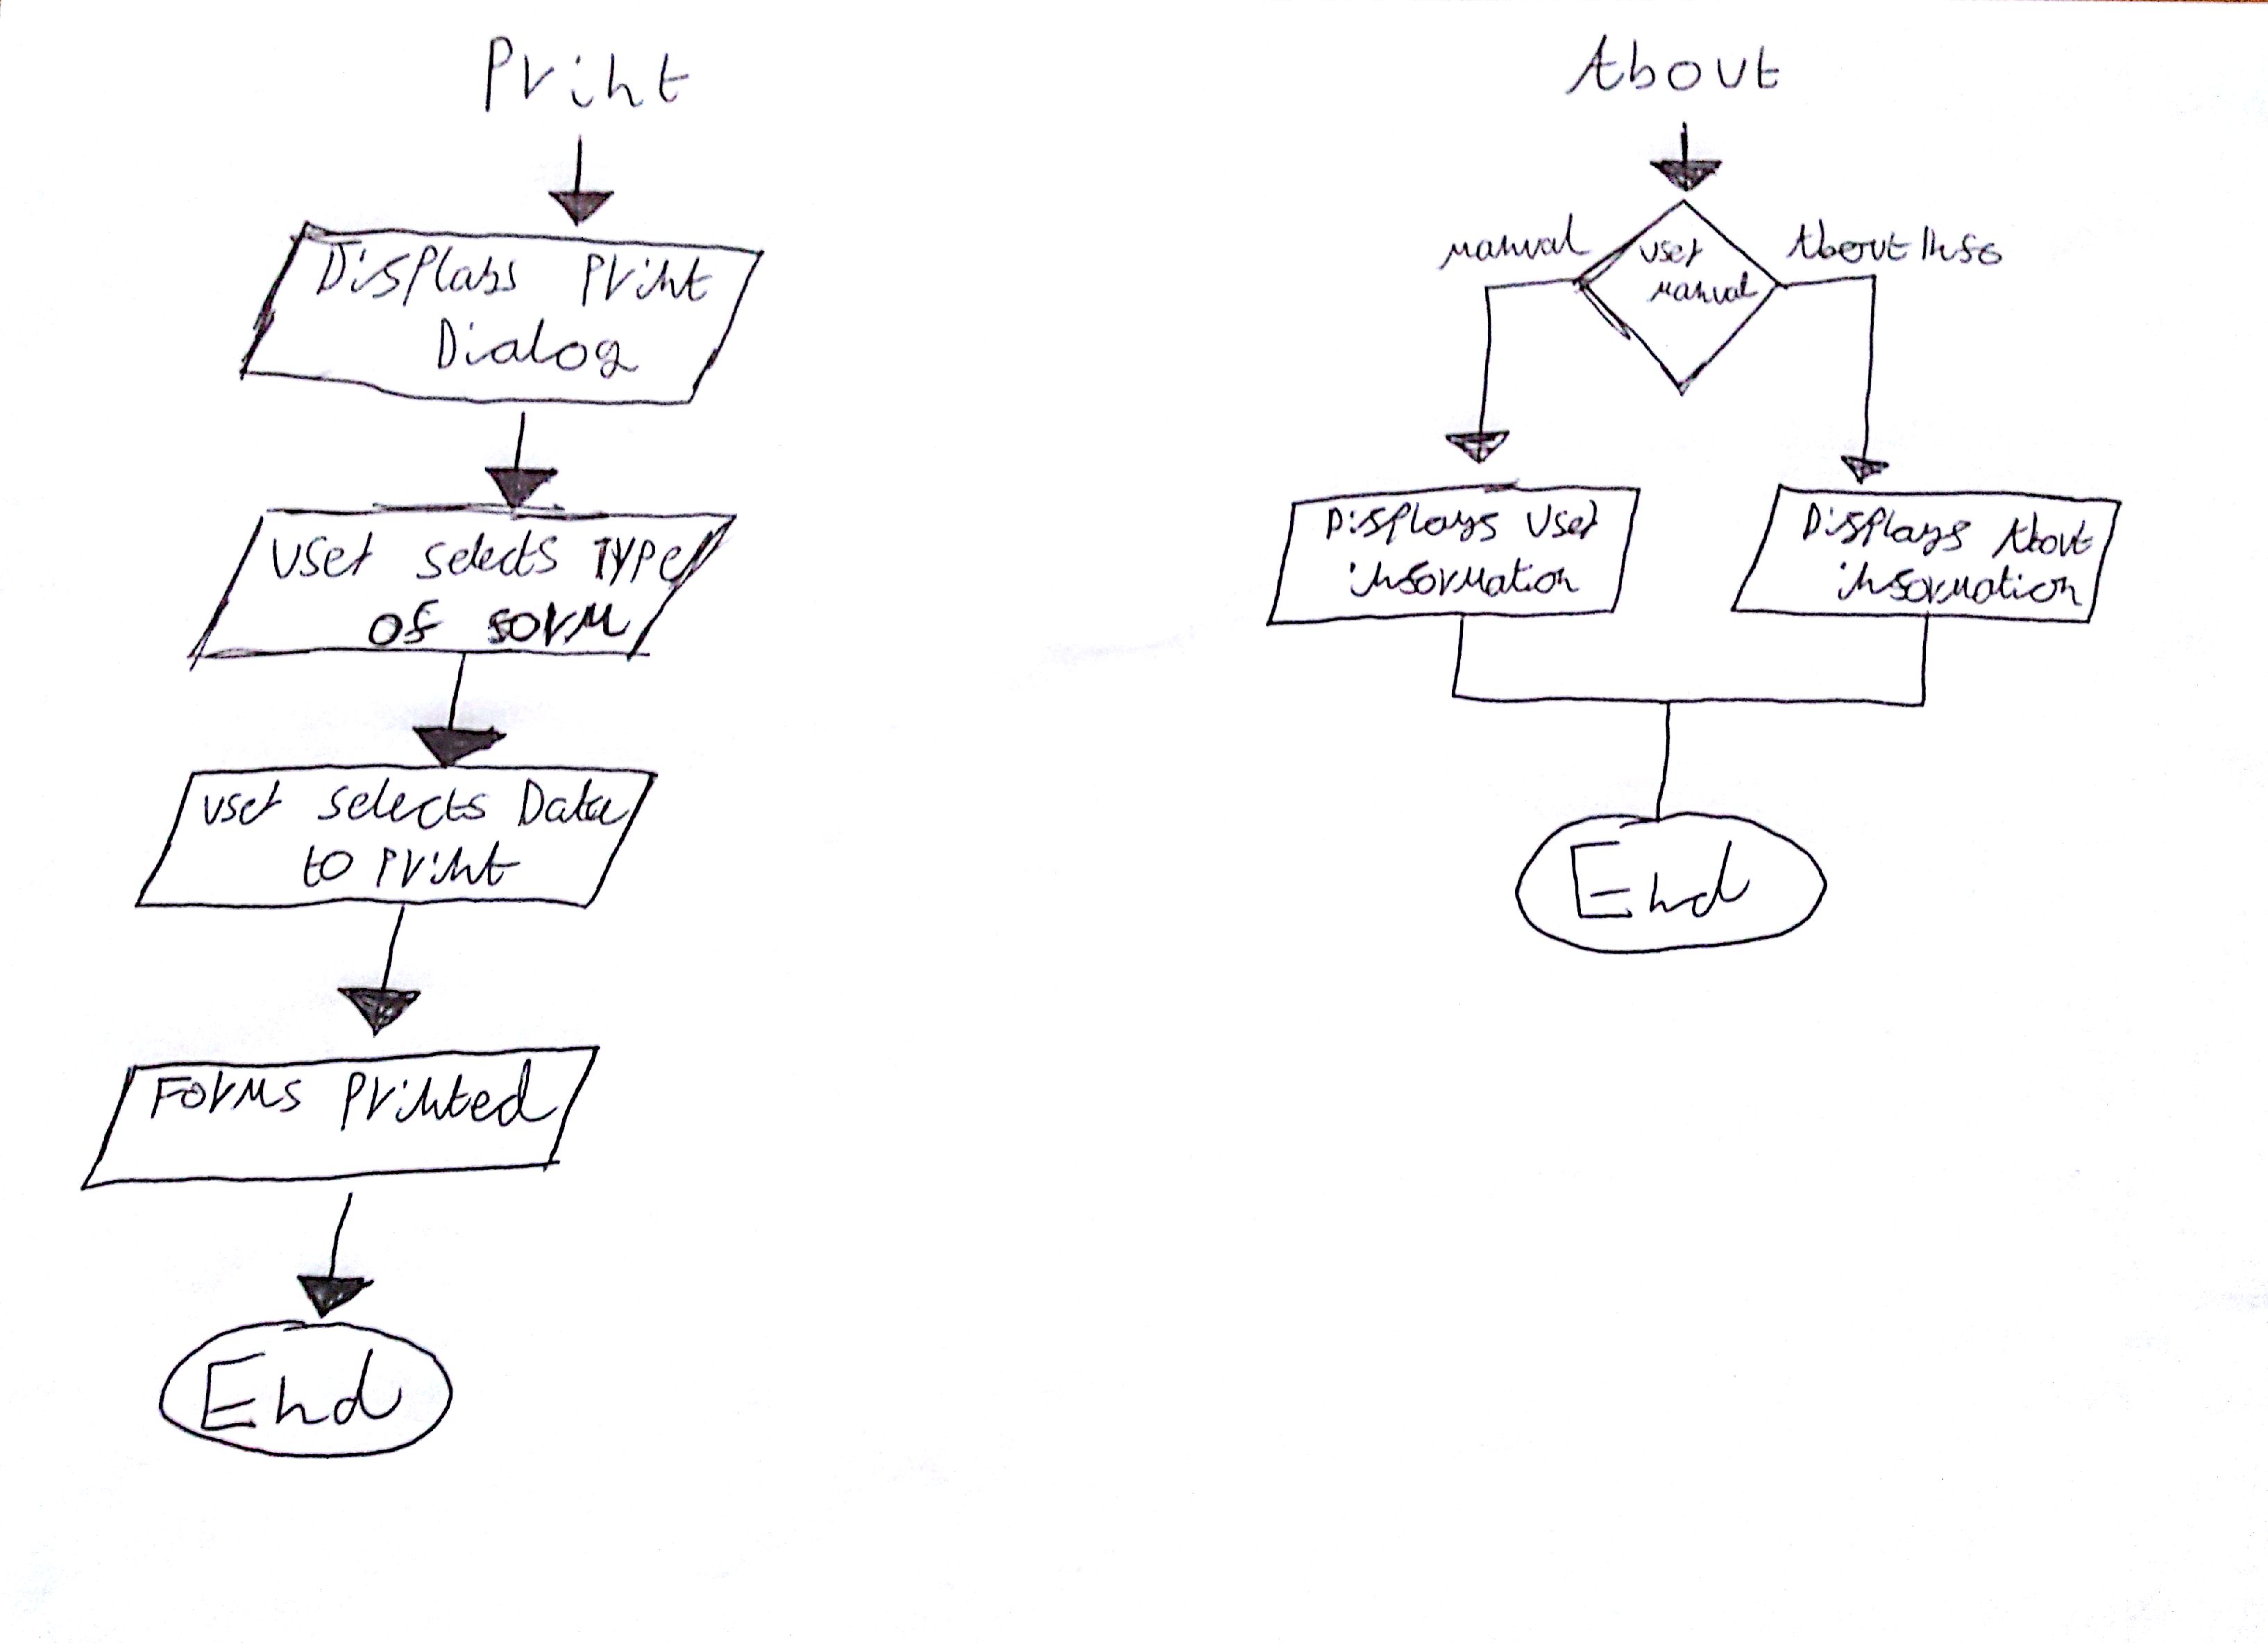 Print
Displays Print
Dialog
User selects Type
of form
User selects Data
to Print
Forms Printed
End
About
manual
User
manual
About Info
Displays User
information
Displays About
information
End